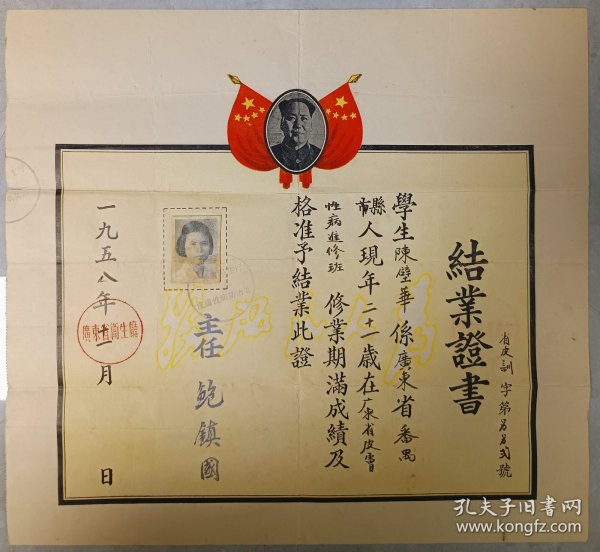 結業證書
省皮訓字第
號
學生陳璧華係廣東省番禺
縣市人現年二十歲在广東省皮膚
性病進修班修業期滿成績及
格准予結業此證
主任 鮑鎮國
一九五八年十二月 日
廣東省衞生廳
孔夫子旧书网
www.kongfz.com